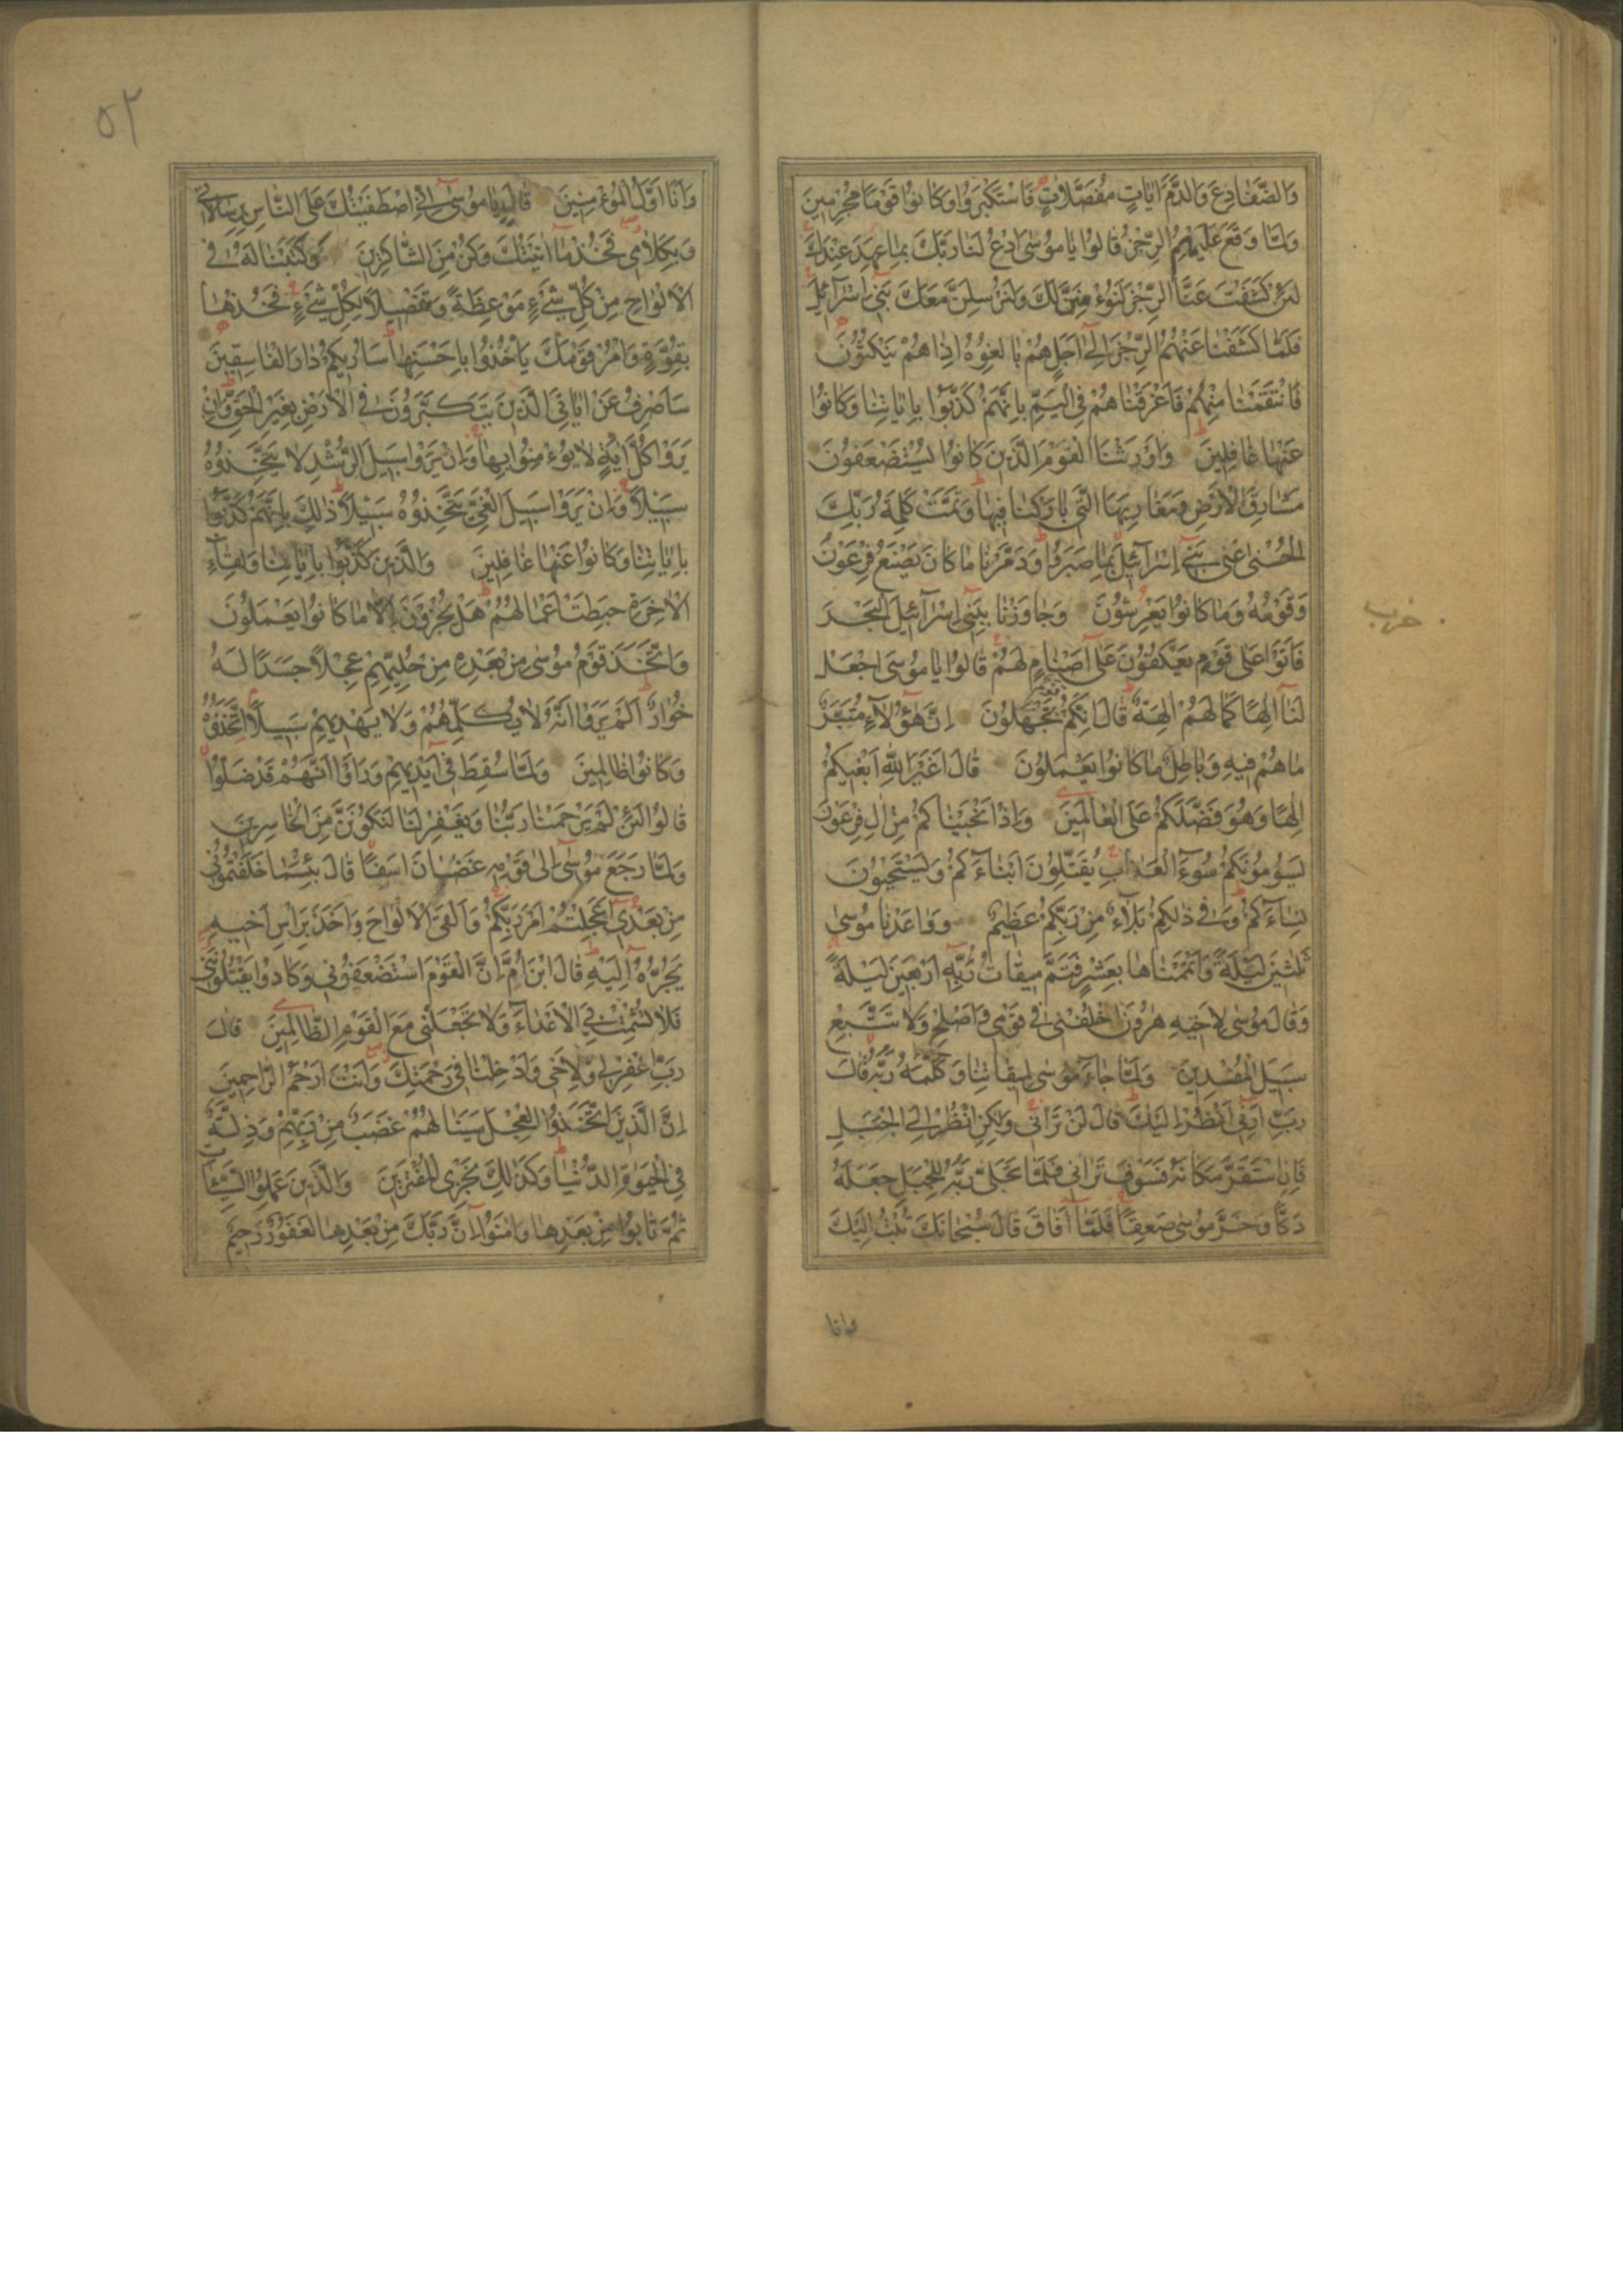 وَالضَّفَادِعَ وَالدَّمَ اٰيَاتٍ مُفَصَّلَاتٍ فَاسْتَكْبَرُوا وَكَانُوا قَوْمًا مُجْرِمِينَ
وَلَمَّا وَقَعَ عَلَيْهِمُ الرِّجْزُ قَالُوا يَا مُوسَى ادْعُ لَنَا رَبَّكَ بِمَا عَهِدَ عِنْدَكَ
لَئِنْ كَشَفْتَ عَنَّا الرِّجْزَ لَنُؤْمِنَنَّ لَكَ وَلَنُرْسِلَنَّ مَعَكَ بَنِي اِسْرَآئِيلَ
فَلَمَّا كَشَفْنَا عَنْهُمُ الرِّجْزَ اِلٰى اَجَلٍ هُمْ بَالِغُوهُ اِذَا هُمْ يَنْكُثُونَ
فَانْتَقَمْنَا مِنْهُمْ فَاَغْرَقْنَاهُمْ فِي الْيَمِّ بِاَنَّهُمْ كَذَّبُوا بِاٰيَاتِنَا وَكَانُوا
عَنْهَا غَافِلِينَ وَاَوْرَثْنَا الْقَوْمَ الَّذِينَ كَانُوا يُسْتَضْعَفُونَ
مَشَارِقَ الْاَرْضِ وَمَغَارِبَهَا الَّتِي بَارَكْنَا فِيهَا وَتَمَّتْ كَلِمَةُ رَبِّكَ
الْحُسْنٰى عَلٰى بَنِي اِسْرَآئِيلَ بِمَا صَبَرُوا وَدَمَّرْنَا مَا كَانَ يَصْنَعُ فِرْعَوْنُ
وَقَوْمُهُ وَمَا كَانُوا يَعْرِشُونَ وَجَاوَزْنَا بِبَنِي اِسْرَآئِيلَ الْبَحْرَ
فَاَتَوْا عَلٰى قَوْمٍ يَعْكُفُونَ عَلٰى اَصْنَامٍ لَهُمْ قَالُوا يَا مُوسَى اجْعَلْ
لَنَا اِلٰهًا كَمَا لَهُمْ اٰلِهَةٌ قَالَ اِنَّكُمْ قَوْمٌ تَجْهَلُونَ اِنَّ هٰؤُلَآءِ مُتَبَّرٌ
مَا هُمْ فِيهِ وَبَاطِلٌ مَا كَانُوا يَعْمَلُونَ قَالَ اَغَيْرَ اللّٰهِ اَبْغِيكُمْ
اِلٰهًا وَهُوَ فَضَّلَكُمْ عَلَى الْعَالَمِينَ وَاِذْ اَنْجَيْنَاكُمْ مِنْ اٰلِ فِرْعَوْنَ
يَسُومُونَكُمْ سُوءَ الْعَذَابِ يُقَتِّلُونَ اَبْنَآءَكُمْ وَيَسْتَحْيُونَ
نِسَآءَكُمْ وَفِي ذٰلِكُمْ بَلَآءٌ مِنْ رَبِّكُمْ عَظِيمٌ وَوَاعَدْنَا مُوسٰى
ثَلٰثِينَ لَيْلَةً وَاَتْمَمْنَاهَا بِعَشْرٍ فَتَمَّ مِيقَاتُ رَبِّهِ اَرْبَعِينَ لَيْلَةً
وَقَالَ مُوسٰى لِاَخِيهِ هٰرُونَ اخْلُفْنِي فِي قَوْمِي وَاَصْلِحْ وَلَا تَتَّبِعْ
سَبِيلَ الْمُفْسِدِينَ وَلَمَّا جَآءَ مُوسٰى لِمِيقَاتِنَا وَكَلَّمَهُ رَبُّهُ قَالَ
رَبِّ اَرِنِي اَنْظُرْ اِلَيْكَ قَالَ لَنْ تَرَانِي وَلٰكِنِ انْظُرْ اِلَى الْجَبَلِ
فَاِنِ اسْتَقَرَّ مَكَانَهُ فَسَوْفَ تَرَانِي فَلَمَّا تَجَلّٰى رَبُّهُ لِلْجَبَلِ جَعَلَهُ
دَكًّا وَخَرَّ مُوسٰى صَعِقًا فَلَمَّا اَفَاقَ قَالَ سُبْحَانَكَ تُبْتُ اِلَيْكَ
وانا
حزب
٥٢
وَاَنَا اَوَّلُ الْمُؤْمِنِينَ قَالَ يَا مُوسٰى اِنِّي اصْطَفَيْتُكَ عَلَى النَّاسِ بِرِسَالَاتِي
وَبِكَلَامِي فَخُذْ مَا اٰتَيْتُكَ وَكُنْ مِنَ الشَّاكِرِينَ وَكَتَبْنَا لَهُ فِي
الْاَلْوَاحِ مِنْ كُلِّ شَيْءٍ مَوْعِظَةً وَتَفْصِيلًا لِكُلِّ شَيْءٍ فَخُذْهَا
بِقُوَّةٍ وَاْمُرْ قَوْمَكَ يَاْخُذُوا بِاَحْسَنِهَا سَاُرِيكُمْ دَارَ الْفَاسِقِينَ
سَاَصْرِفُ عَنْ اٰيَاتِيَ الَّذِينَ يَتَكَبَّرُونَ فِي الْاَرْضِ بِغَيْرِ الْحَقِّ وَاِنْ
يَرَوْا كُلَّ اٰيَةٍ لَا يُؤْمِنُوا بِهَا وَاِنْ يَرَوْا سَبِيلَ الرُّشْدِ لَا يَتَّخِذُوهُ
سَبِيلًا وَاِنْ يَرَوْا سَبِيلَ الْغَيِّ يَتَّخِذُوهُ سَبِيلًا ذٰلِكَ بِاَنَّهُمْ كَذَّبُوا
بِاٰيَاتِنَا وَكَانُوا عَنْهَا غَافِلِينَ وَالَّذِينَ كَذَّبُوا بِاٰيَاتِنَا وَلِقَآءِ
الْاٰخِرَةِ حَبِطَتْ اَعْمَالُهُمْ هَلْ يُجْزَوْنَ اِلَّا مَا كَانُوا يَعْمَلُونَ
وَاتَّخَذَ قَوْمُ مُوسٰى مِنْ بَعْدِهِ مِنْ حُلِيِّهِمْ عِجْلًا جَسَدًا لَهُ
خُوَارٌ اَلَمْ يَرَوْا اَنَّهُ لَا يُكَلِّمُهُمْ وَلَا يَهْدِيهِمْ سَبِيلًا اتَّخَذُوهُ
وَكَانُوا ظَالِمِينَ وَلَمَّا سُقِطَ فِي اَيْدِيهِمْ وَرَاَوْا اَنَّهُمْ قَدْ ضَلُّوا
قَالُوا لَئِنْ لَمْ يَرْحَمْنَا رَبُّنَا وَيَغْفِرْ لَنَا لَنَكُونَنَّ مِنَ الْخَاسِرِينَ
وَلَمَّا رَجَعَ مُوسٰى اِلٰى قَوْمِهِ غَضْبَانَ اَسِفًا قَالَ بِئْسَمَا خَلَفْتُمُونِي
مِنْ بَعْدِي اَعَجِلْتُمْ اَمْرَ رَبِّكُمْ وَاَلْقَى الْاَلْوَاحَ وَاَخَذَ بِرَاْسِ اَخِيهِ
يَجُرُّهُ اِلَيْهِ قَالَ ابْنَ اُمَّ اِنَّ الْقَوْمَ اسْتَضْعَفُونِي وَكَادُوا يَقْتُلُونَنِي
فَلَا تُشْمِتْ بِيَ الْاَعْدَآءَ وَلَا تَجْعَلْنِي مَعَ الْقَوْمِ الظَّالِمِينَ قَالَ
رَبِّ اغْفِرْ لِي وَلِاَخِي وَاَدْخِلْنَا فِي رَحْمَتِكَ وَاَنْتَ اَرْحَمُ الرَّاحِمِينَ
اِنَّ الَّذِينَ اتَّخَذُوا الْعِجْلَ سَيَنَالُهُمْ غَضَبٌ مِنْ رَبِّهِمْ وَذِلَّةٌ
فِي الْحَيٰوةِ الدُّنْيَا وَكَذٰلِكَ نَجْزِي الْمُفْتَرِينَ وَالَّذِينَ عَمِلُوا السَّيِّئَاتِ
ثُمَّ تَابُوا مِنْ بَعْدِهَا وَاٰمَنُوا اِنَّ رَبَّكَ مِنْ بَعْدِهَا لَغَفُورٌ رَحِيمٌ